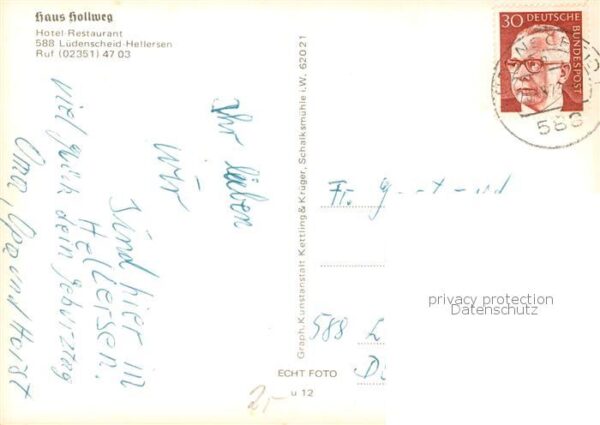 Haus Hollweg
Hotel-Restaurant
588 Lüdenscheid-Hellersen
Ruf (02351) 47 03
30 DEUTSCHE
BUNDESPOST
588
Ihr lieben
wir
sind hier in
Hellersen.
viel glück dein geburtztag
Oma, Opa und Horst
Graph. Kunstanstalt Kettling & Krüger, Schalksmühle i.W. 62021
Fr.
588 L
D
privacy protection
Datenschutz
ECHT FOTO
u 12
2,-